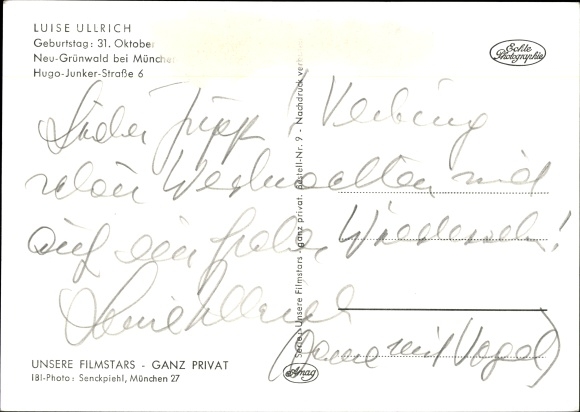 LUISE ULLRICH
Geburtstag: 31. Oktober
Neu-Grünwald bei München
Hugo-Junker-Straße 6
Echte Photographie
Lieber Jupp!
Weihnachten und
auf ein frohes Wiedersehn!
Luise Ullrich
(Dame mit Vogel)
Serie: Unsere Filmstars - ganz privat. Bestell-Nr. 9 - Nachdruck verboten
UNSERE FILMSTARS - GANZ PRIVAT
IBI-Photo: Senckpiehl, München 27
Amag